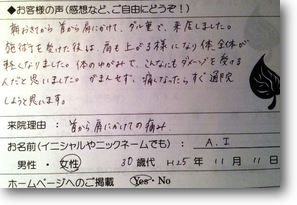 ◆お客様の声(感想など、ご自由にどうぞ!)
朝おきてから首から肩にかけて、ダル重で、来店しました。
施術を受けた後は、肩も上がる様になり体全体が
軽くなりました。体のゆがみで、こんなにもダメージを受ける
んだと思いました。がまんせず、痛くなったらすぐ通院
しようと思います。
来院理由: 首から肩にかけての痛み
お名前(イニシャルやニックネームでも): A.I
男性・女性 30歳代 H25年11月11日
ホームページへのご掲載 Yes・No